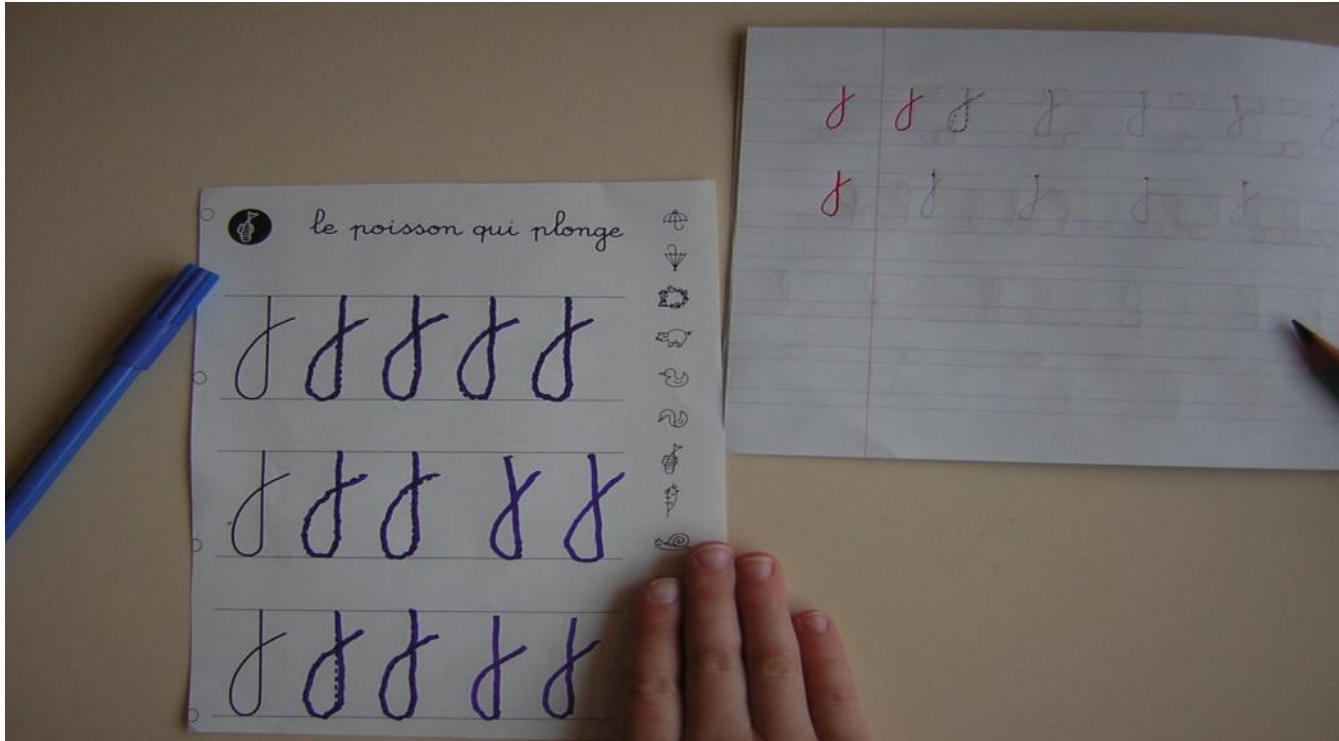 le poisson qui plonge